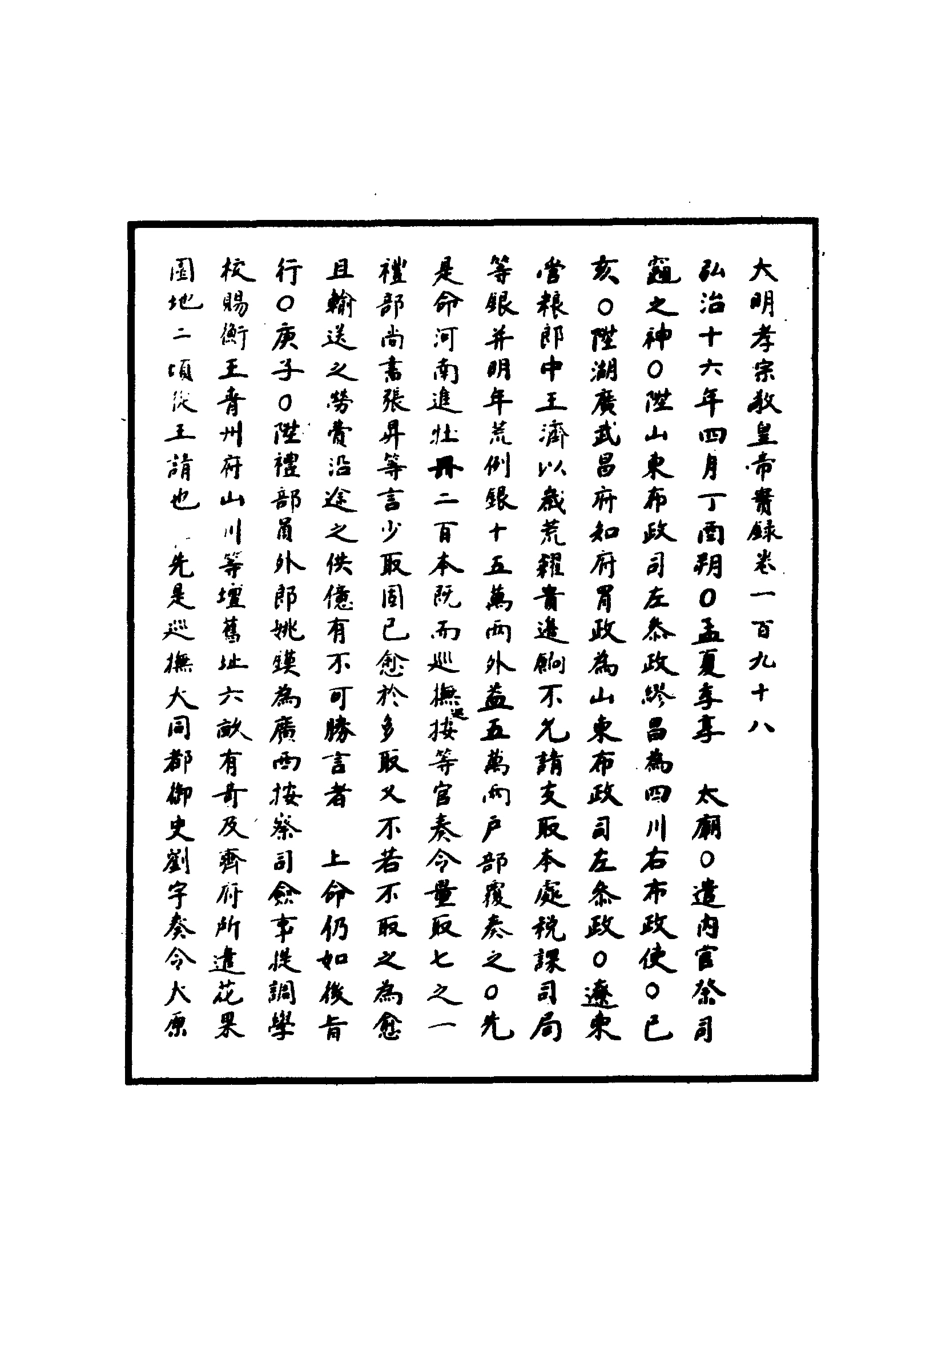 大明孝宗敬皇帝實錄卷一百九十八
弘治十六年四月丁酉朔○孟夏享享　太廟○遣內官祭司
竈之神○陞山東布政司左叅政繆昌為四川右布政使○己
亥○陞湖廣武昌府知府胃政為山東布政司左叅政○遼東
管粮郎中王濟以歲荒糴貴邊餉不允請支取本處稅課司局
等銀并明年荒例銀十五萬兩外益五萬兩戶部覆奏之○先
是命河南進牡丹二百本既而巡撫巡按等官奏令量取七之一
禮部尚書張昇等言少取固已愈於多取又不若不取之為愈
且輸送之勞費沿途之供億有不可勝言者　上命仍如後旨
行○庚子○陞禮部員外郎姚鏌為廣西按察司僉事提調學
校賜衡王青州府山川等壇舊址六畝有奇及齊府所遺花果
園地二頃從王請也　先是巡撫大同都御史劉宇奏令大原